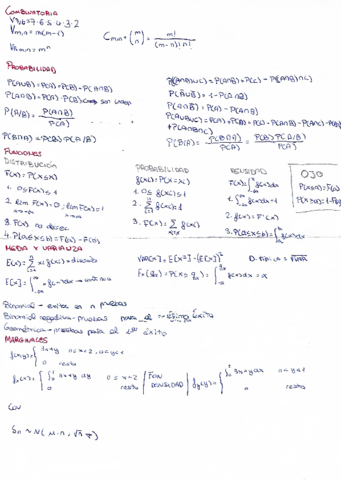 COMBINATORIA
V7,6=7·6·5·4·3·2
Vm,n = m(m-1)
VRm,n = m^n
Cm,n = (m n) = m! / (m-n)! n!
PROBABILIDAD
P(A∪B) = P(A) + P(B) - P(A∩B)
P(A∩B) = P(A) · P(B)
P(A/B) = P(A∩B) / P(A)
P(B∩A) = P(B) · P(A/B)
P(A∩B) = P(A) - P(A∩B)
P(B/A) = P(B∩A) / P(A) = P(B) · P(A/B) / P(A)
FUNCIONES
DISTRIBUCIÓN
F(x) = P(X≤x)
1. 0≤F(x)≤1
2. lim F(x) = 0 lim F(x) = 1
3. F(x) no decrec
4. P(a≤x≤b) = F(b) - F(a)
PROBABILIDAD
f(xi) = P(X=xi)
1. 0≤ f(xi) ≤1
2. Σ f(xi) = 1
3. F(x) = Σ f(xi)
DENSIDAD
F(x) = ∫ f(x) dx
1. ∫ f(x) dx = 1
2. f(x) = F'(x)
3. P(a≤x≤b) = ∫ f(x) dx
OJO
P(X≤a) = F(a)
P(X≥a) = 1-F(a)
MEDIA Y VARIANZA
E(x) = Σ xi f(xi) → discreto
E[x] = ∫ x f(x) dx → continua
Var[x] = E[x²] - (E[x])²
D. típica = √Var
Binomial - éxitos en n pruebas
Binomial negativa - pruebas para el -ésimo éxito
Geométrica - pruebas para el 1er éxito
MARGINALES
f(x,y) = { 3x+y 0≤x<2, 0≤y≤1
0 resto
fx(x) = { ∫ 3x+y dy 0≤x<2
0 resto
FUN DENSIDAD
fy(y) = { ∫ 3x+y dx 0≤y≤1
0 resto
Cov
Sn ~ N( μ·n, √n σ)